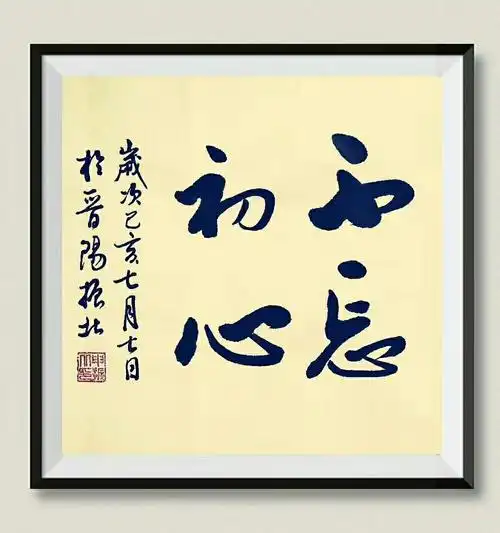 不忘
初心
歲次己亥七月七日
於晋陽振北